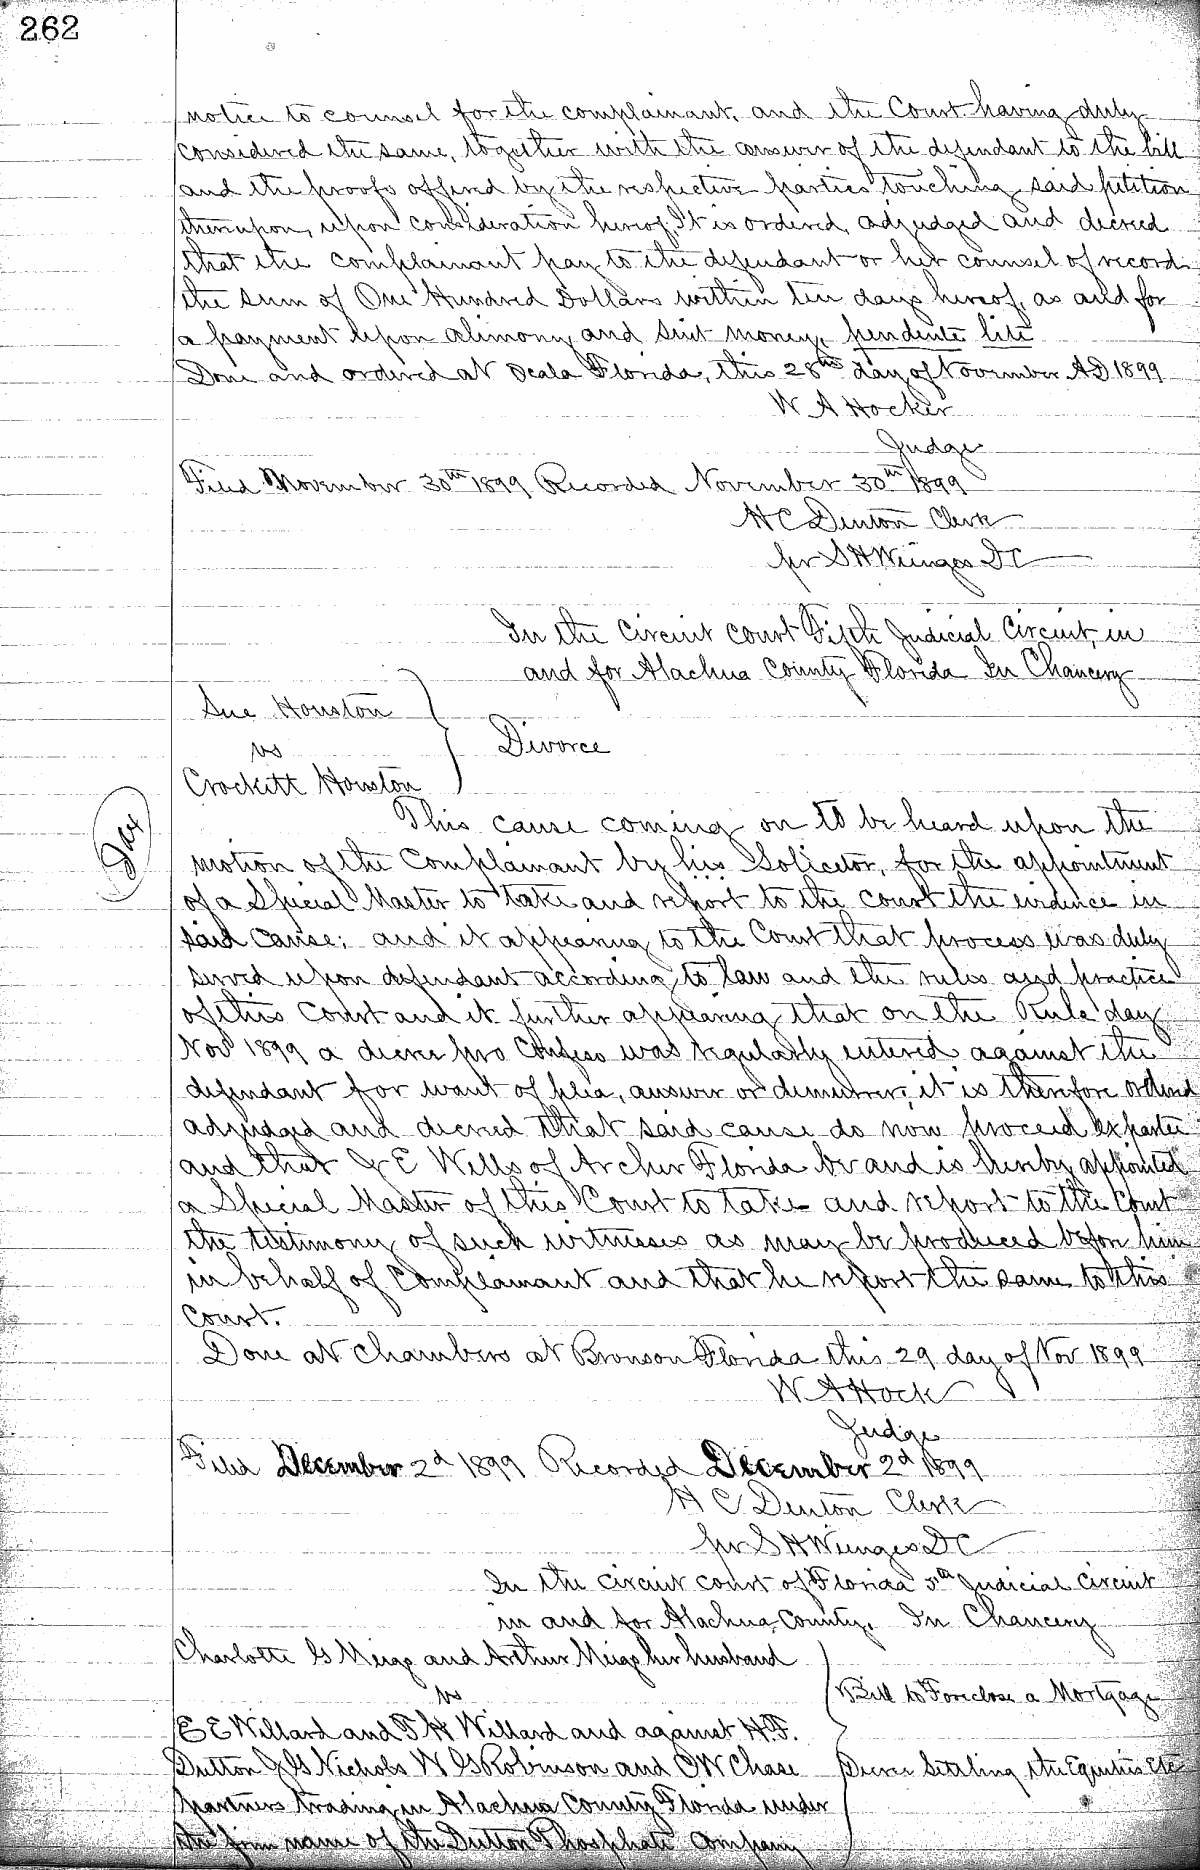 262
notice to counsel for the complainant, and the Court having duly
considered the same, together with the answer of the defendant to the bill
and the proofs offered by the respective parties touching said petition
thereupon, upon consideration hereof, It is ordered, adjudged and decreed
that the complainant pay to the defendant or her counsel of record
the sum of One Hundred Dollars within ten days hereof, as and for
a payment upon alimony and suit money, pendente lite
Done and ordered at Ocala Florida, this 28th day of November AD 1899
W A Hocker
Judge
Filed November 30th 1899 Recorded November 30th 1899
H C Denton Clerk
per S H Wienges DC
In the Circuit Court Fifth Judicial Circuit, in
and for Alachua County Florida In Chancery
Sue Houston
vs
Divorce
Crockett Houston
This cause coming on to be heard upon the
motion of the Complainant by his Solicitor, for the appointment
of a Special Master to take and report to the court the evidence in
said cause; and it appearing to the Court that process was duly
served upon defendant according to law and the rules and practice
of this Court and it further appearing that on the Rule day
Nov 1899 a decree pro Confesso was regularly entered against the
defendant for want of plea, answer or demurrer; it is therefore ordered
adjudged and decreed that said cause do now proceed exparte
and that E Wills of Archer Florida be and is hereby appointed
a Special Master of this Court to take and report to the Court
the testimony of such witnesses as may be produced before him
in behalf of Complainant and that he report the same to this
court.
Done at Chambers at Bronson Florida this 29 day of Nov 1899
W A Hock
Judge
Filed December 2d 1899 Recorded December 2d 1899
H C Denton Clerk
per S H Wienges DC
In the circuit court of Florida 5th Judicial Circuit
in and for Alachua County. In Chancery
Charlotte G Meigs and Arthur Meigs her husband
vs
Bill to Foreclose a Mortgage
E E Willard and F H Willard and against H.F.
Dutton J G Nichols W G Robinson and O W Chase
Decree Settling the Equities Etc
partners trading in Alachua County Florida under
the firm name of the Dutton Phosphate Company